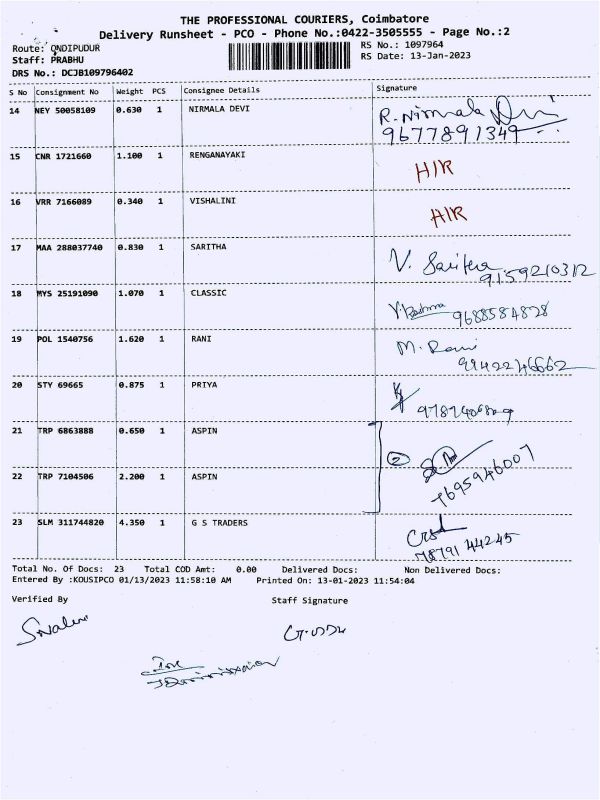 THE PROFESSIONAL COURIERS, Coimbatore
Delivery Runsheet - PCO - Phone No.:0422-3505555 - Page No.:2
Route: ONDIPUDUR
RS No.: 1097964
Staff: PRABHU
RS Date: 13-Jan-2023
DRS No.: DCJB109796402
S No Consignment No Weight PCS Consignee Details Signature
14 NEY 50058109 0.630 1 NIRMALA DEVI R. Nirmala Devi
9677891349
15 CNR 1721660 1.100 1 RENGANAYAKI H/R
16 VRR 7166089 0.340 1 VISHALINI H/R
17 MAA 288037740 0.830 1 SARITHA V. Saritha
9159210312
18 MYS 25191090 1.070 1 CLASSIC
9688584828
19 POL 1540756 1.620 1 RANI M. Rani
9942246662
20 STY 69665 0.875 1 PRIYA
21 TRP 6863888 0.650 1 ASPIN
2
22 TRP 7104506 2.200 1 ASPIN 7695946007
23 SLM 311744820 4.350 1 G S TRADERS
78791 44245
Total No. Of Docs: 23 Total COD Amt: 0.00 Delivered Docs: Non Delivered Docs:
Entered By :KOUSIPCO 01/13/2023 11:58:10 AM Printed On: 13-01-2023 11:54:04
Verified By Staff Signature